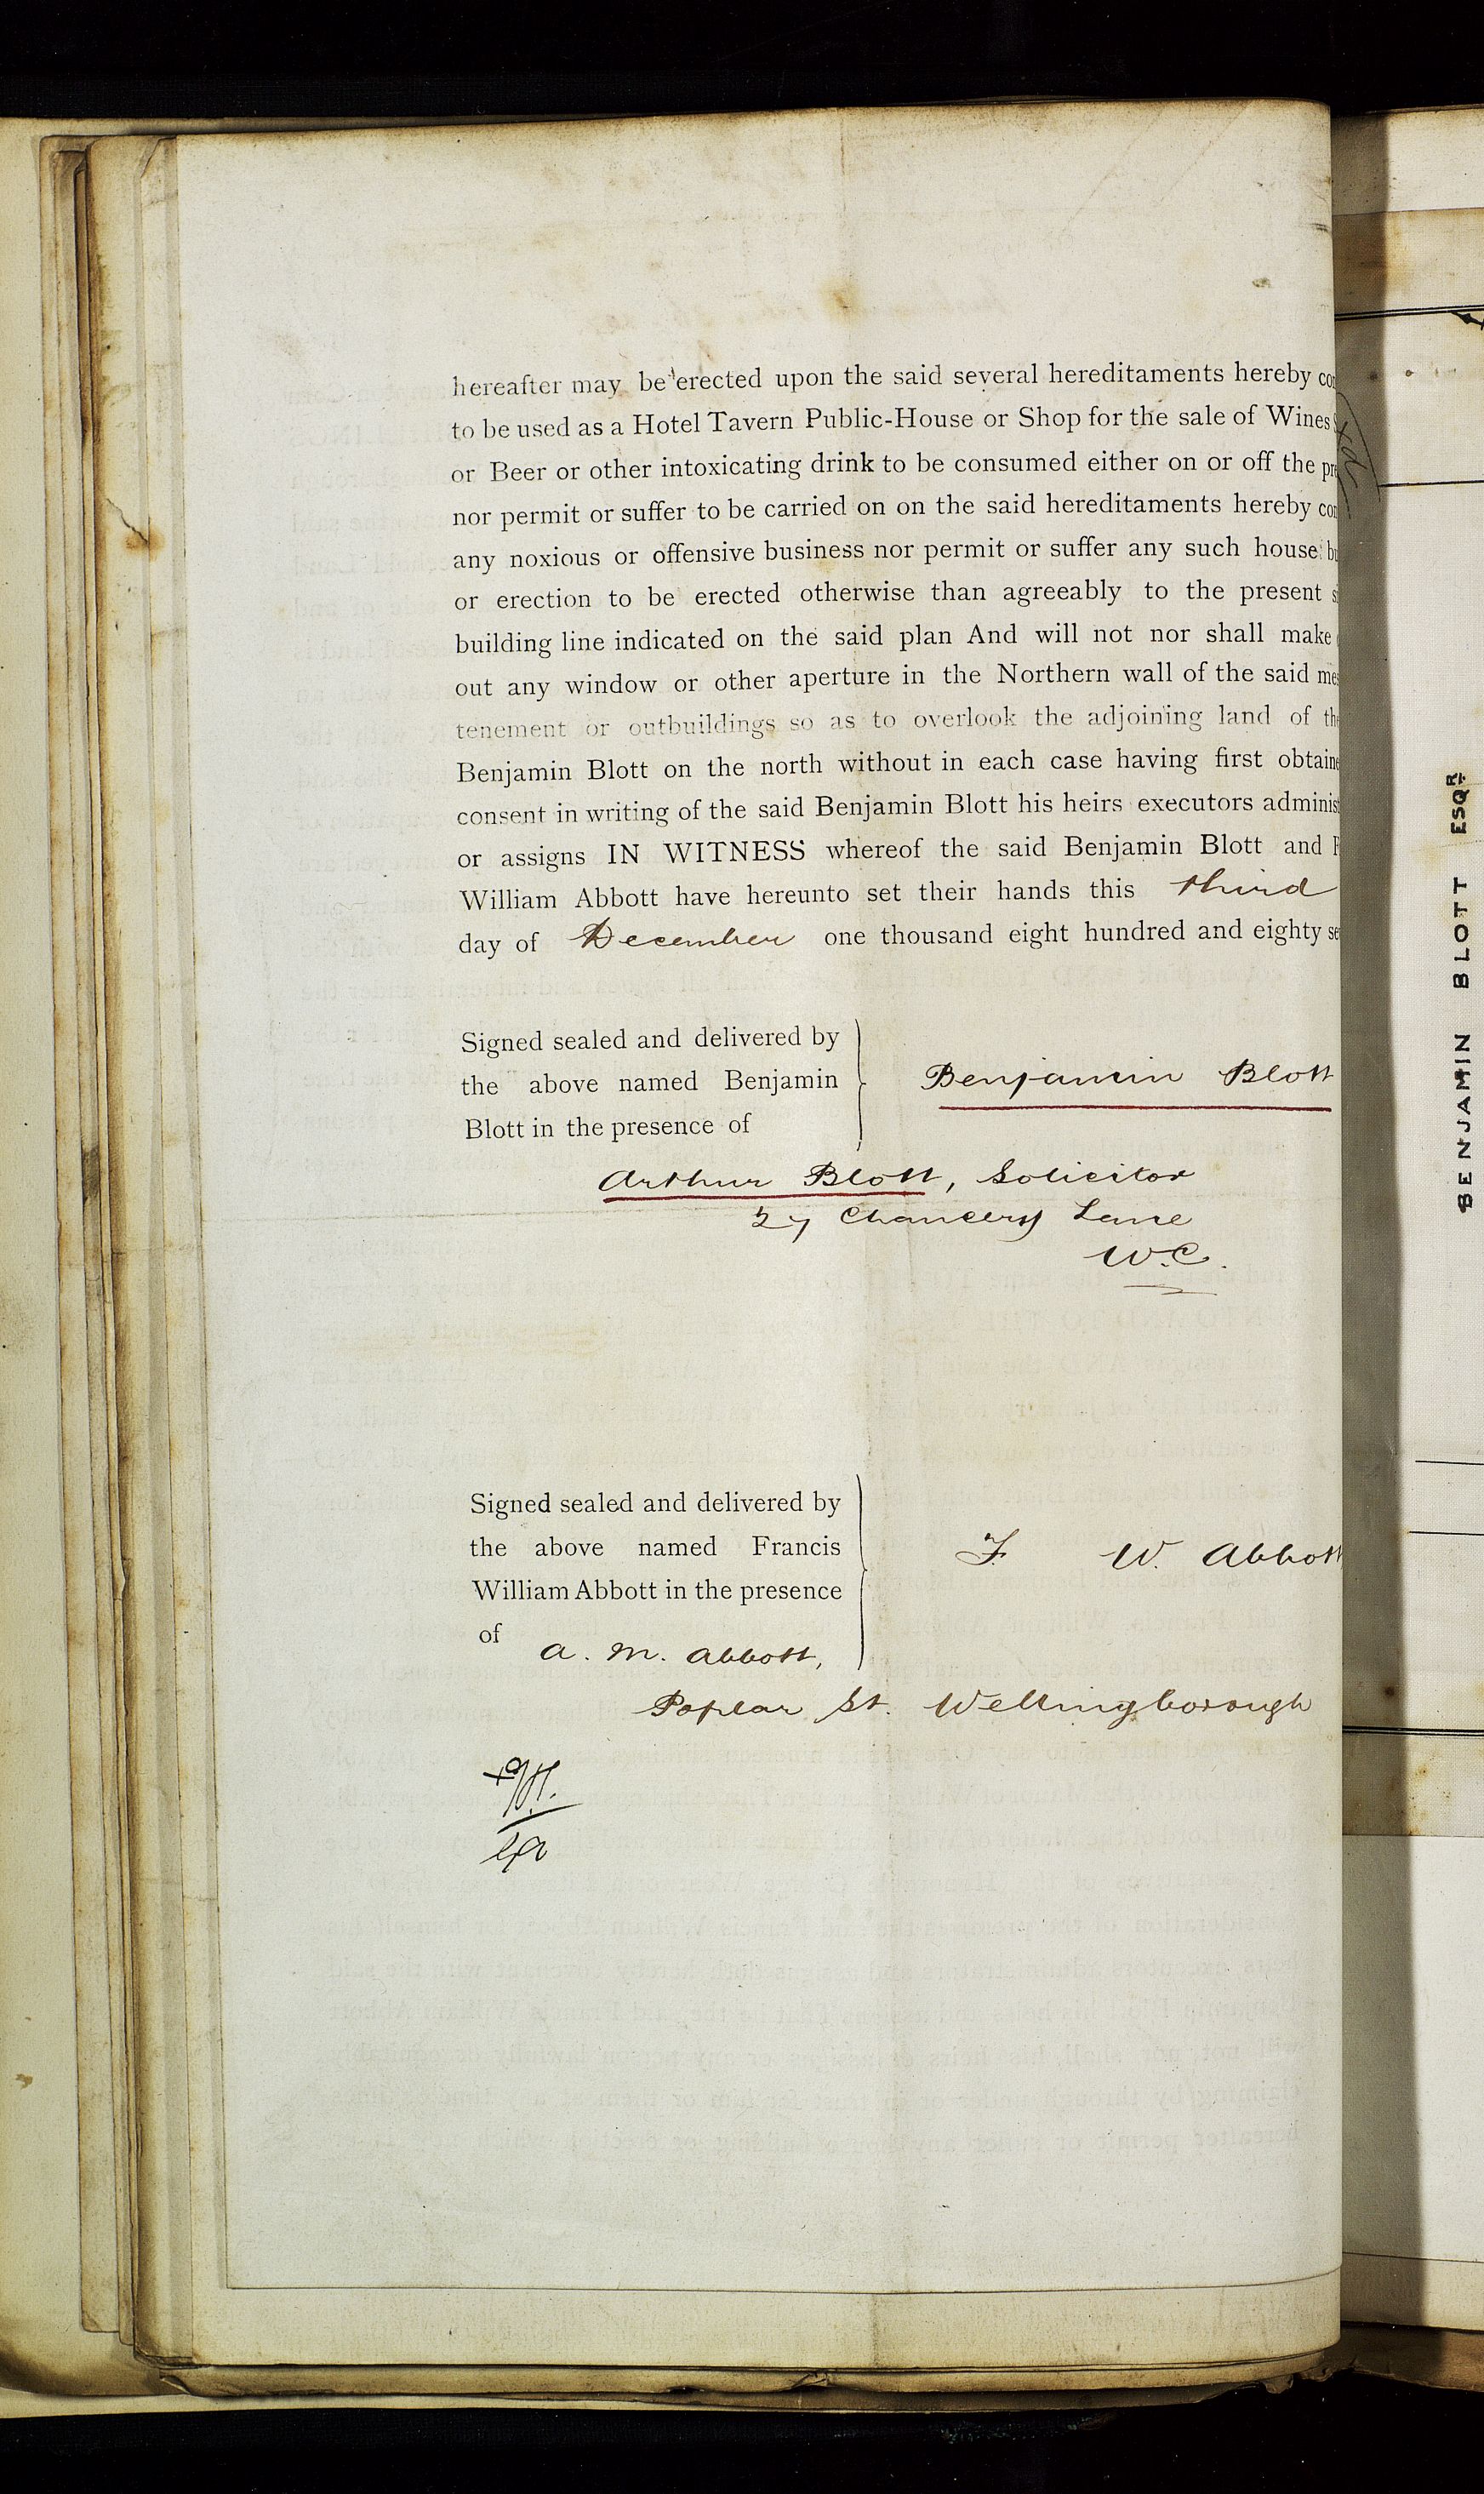 hereafter may be erected upon the said several hereditaments hereby
to be used as a Hotel Tavern Public-House or Shop for the sale of Wines
or Beer or other intoxicating drink to be consumed either on or off the
nor permit or suffer to be carried on on the said hereditaments hereby
any noxious or offensive business nor permit or suffer any such house
or erection to be erected otherwise than agreeably to the present
building line indicated on the said plan And will not nor shall make
out any window or other aperture in the Northern wall of the said
tenement or outbuildings so as to overlook the adjoining land of
Benjamin Blott on the north without in each case having first
consent in writing of the said Benjamin Blott his heirs executors
or assigns IN WITNESS whereof the said Benjamin Blott and
William Abbott have hereunto set their hands this third
day of December one thousand eight hundred and eighty
Signed sealed and delivered by
the above named Benjamin
Blott in the presence of
Benjamin Blott
Arthur Blott, Solicitor
27 Chancery Lane
W.C.
Signed sealed and delivered by
the above named Francis
William Abbott in the presence
of A. M. Abbott,
F W. Abbott
Poplar St. Wellingborough
BENJAMIN BLOTT ESQR